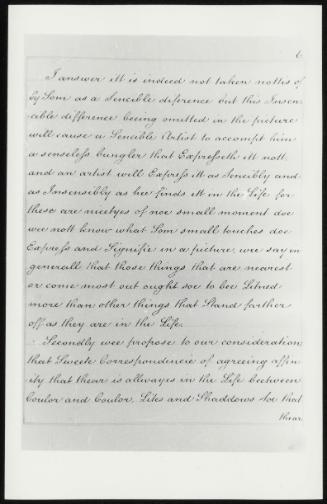 6
I answer itt is indeed not taken nottis of
by Som as a Sencible diference but this Insen-
cible difference beeing omitted in the picture
will cause a Sencible Artist to accompt him
a senseless bungler that Expresseth itt nott.
and an artist will Express itt as Sencibly and
as Insensibly as hee finds itt in the Life for
these are nicetyes of noe small moment doe
wee nott know what Som small touches doe
Express and Signifie in a picture, wee say in
generall that those things that are nearest
or come most out ought soe to bee
more than other things that Stand farther
off as they are in the Life.
Secondly wee propose to our consideration
that Sweete Correspondencie of agreeing affin-
ity that thear is allwayes in the Life beetween
Coulor and Coulor, Lites and Shaddows soe that
thear